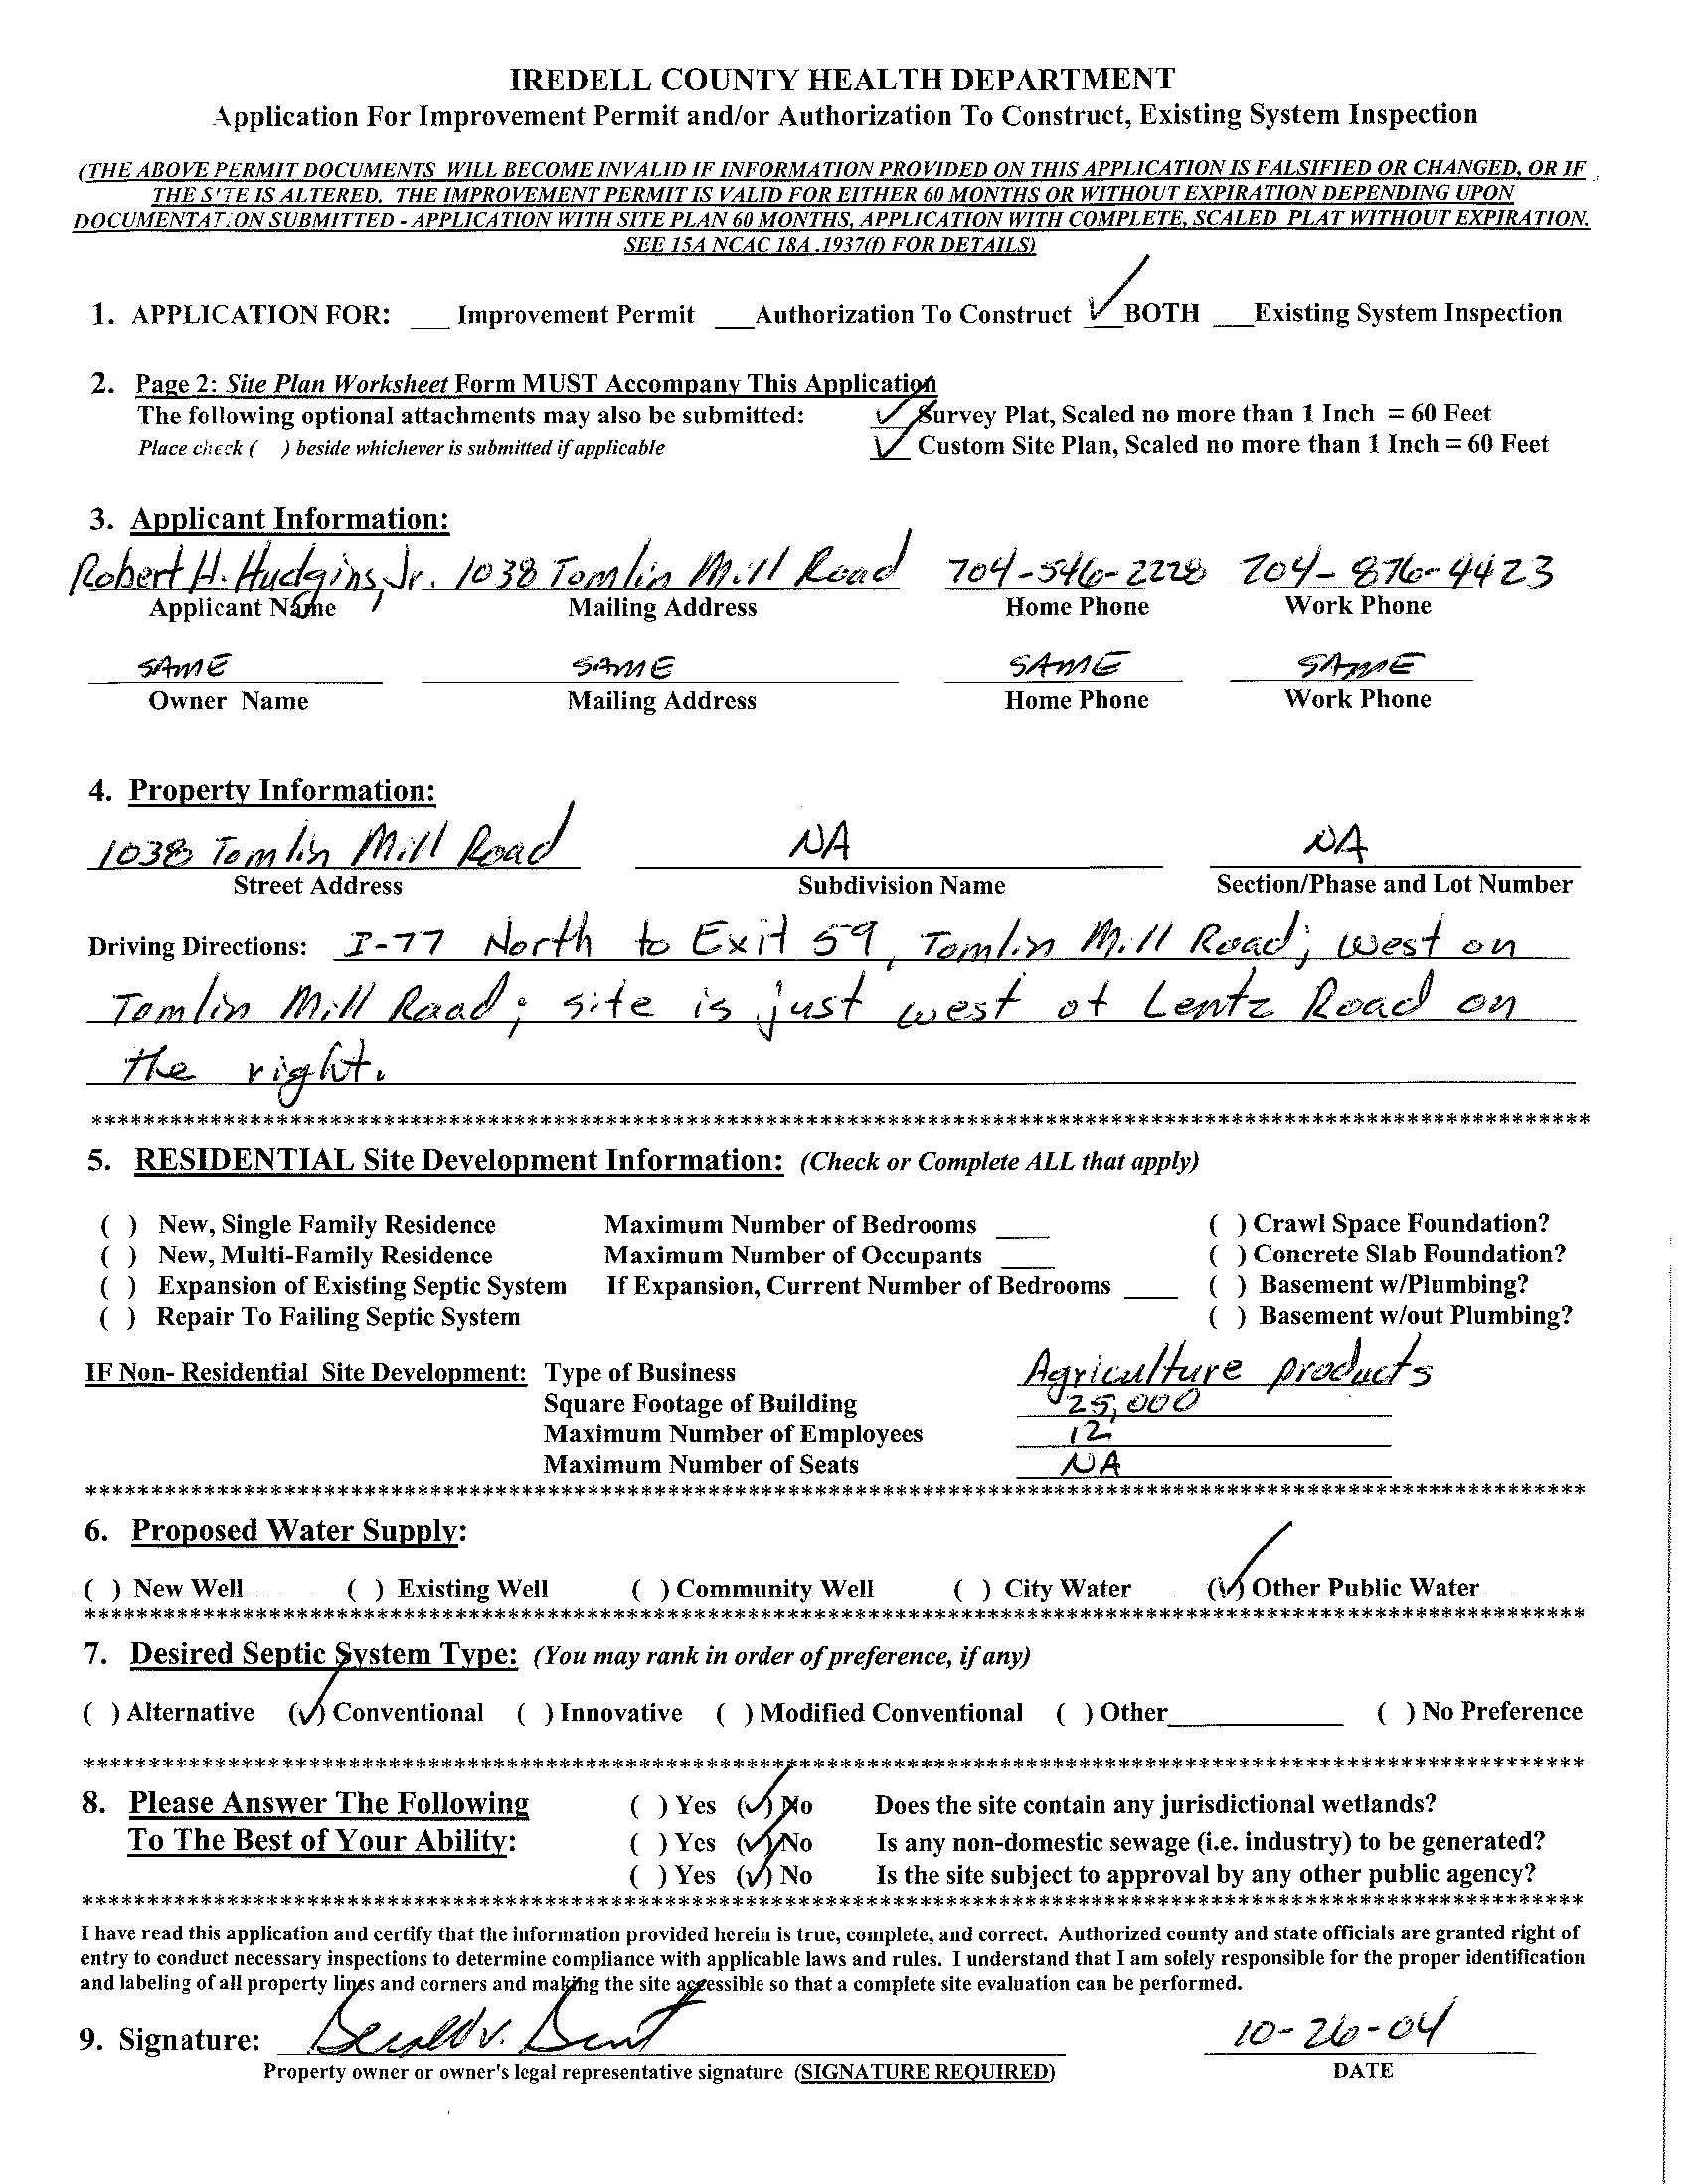 IREDELL COUNTY HEALTH DEPARTMENT
Application For Improvement Permit and/or Authorization To Construct, Existing System Inspection
(THE ABOVE PERMIT DOCUMENTS WILL BECOME INVALID IF INFORMATION PROVIDED ON THIS APPLICATION IS FALSIFIED OR CHANGED, OR IF
THE SITE IS ALTERED. THE IMPROVEMENT PERMIT IS VALID FOR EITHER 60 MONTHS OR WITHOUT EXPIRATION DEPENDING UPON
DOCUMENTATION SUBMITTED - APPLICATION WITH SITE PLAN 60 MONTHS, APPLICATION WITH COMPLETE, SCALED PLAT WITHOUT EXPIRATION.
SEE 15A NCAC 18A .1937(f) FOR DETAILS)
1. APPLICATION FOR: ___ Improvement Permit ___Authorization To Construct ✓ BOTH ___Existing System Inspection
2. Page 2: Site Plan Worksheet Form MUST Accompany This Application
The following optional attachments may also be submitted: ✓ Survey Plat, Scaled no more than 1 Inch = 60 Feet
Place check ( ) beside whichever is submitted if applicable ✓ Custom Site Plan, Scaled no more than 1 Inch = 60 Feet
3. Applicant Information:
Robert H. Hudgins, Jr. 1038 Tomlin Mill Road 704-546-2228 704-876-4423
Applicant Name Mailing Address Home Phone Work Phone
SAME SAME SAME SAME
Owner Name Mailing Address Home Phone Work Phone
4. Property Information:
1038 Tomlin Mill Road NA NA
Street Address Subdivision Name Section/Phase and Lot Number
Driving Directions: I-77 North to Exit 59, Tomlin Mill Road; west on
Tomlin Mill Road; site is just west of Lentz Road on
the right.
******************************************************************************************************************
5. RESIDENTIAL Site Development Information: (Check or Complete ALL that apply)
( ) New, Single Family Residence Maximum Number of Bedrooms ____ ( ) Crawl Space Foundation?
( ) New, Multi-Family Residence Maximum Number of Occupants ____ ( ) Concrete Slab Foundation?
( ) Expansion of Existing Septic System If Expansion, Current Number of Bedrooms ____ ( ) Basement w/Plumbing?
( ) Repair To Failing Septic System ( ) Basement w/out Plumbing?
IF Non- Residential Site Development: Type of Business Agriculture products
Square Footage of Building 25,000
Maximum Number of Employees 12
Maximum Number of Seats NA
******************************************************************************************************************
6. Proposed Water Supply:
( ) New Well ( ) Existing Well ( ) Community Well ( ) City Water (✓) Other Public Water
******************************************************************************************************************
7. Desired Septic System Type: (You may rank in order of preference, if any)
( ) Alternative (✓) Conventional ( ) Innovative ( ) Modified Conventional ( ) Other_____________ ( ) No Preference
******************************************************************************************************************
8. Please Answer The Following ( ) Yes (✓) No Does the site contain any jurisdictional wetlands?
To The Best of Your Ability: ( ) Yes (✓) No Is any non-domestic sewage (i.e. industry) to be generated?
( ) Yes (✓) No Is the site subject to approval by any other public agency?
******************************************************************************************************************
I have read this application and certify that the information provided herein is true, complete, and correct. Authorized county and state officials are granted right of
entry to conduct necessary inspections to determine compliance with applicable laws and rules. I understand that I am solely responsible for the proper identification
and labeling of all property lines and corners and making the site accessible so that a complete site evaluation can be performed.
9. Signature: 10-26-04
Property owner or owner's legal representative signature (SIGNATURE REQUIRED) DATE